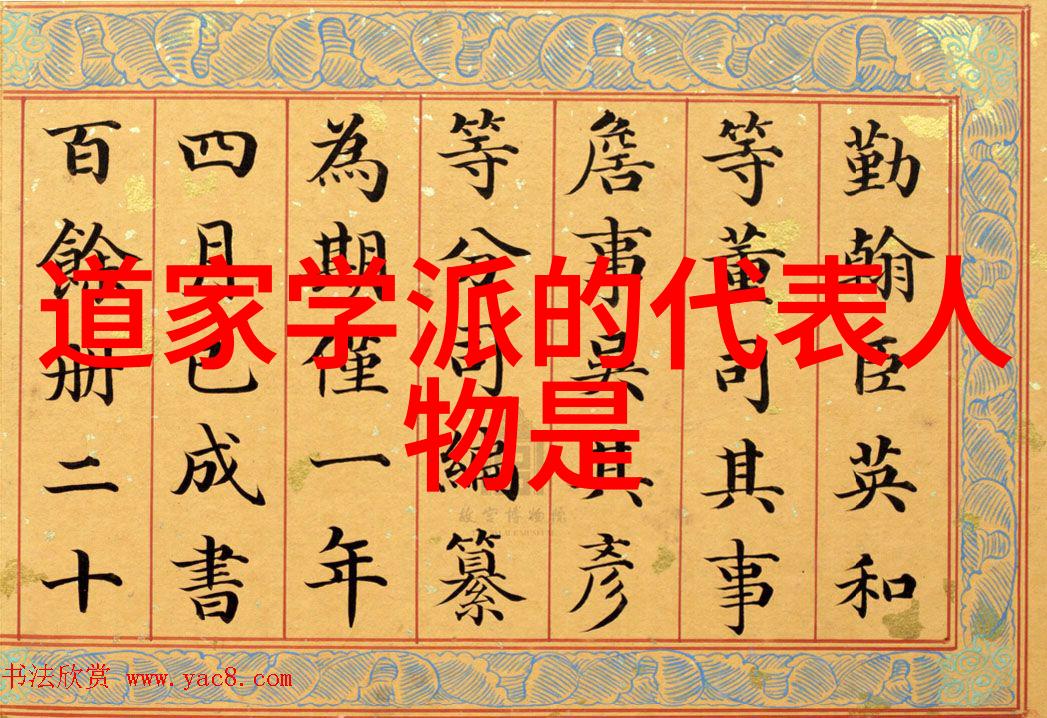 道家学派的代表人
物是
勤翰臣英和
等董司其事
詹事吳其彥
等分司編纂
為期僅一年
四月已成書
百餘册二十
故宫博物院
书法欣赏 www.yac8.com